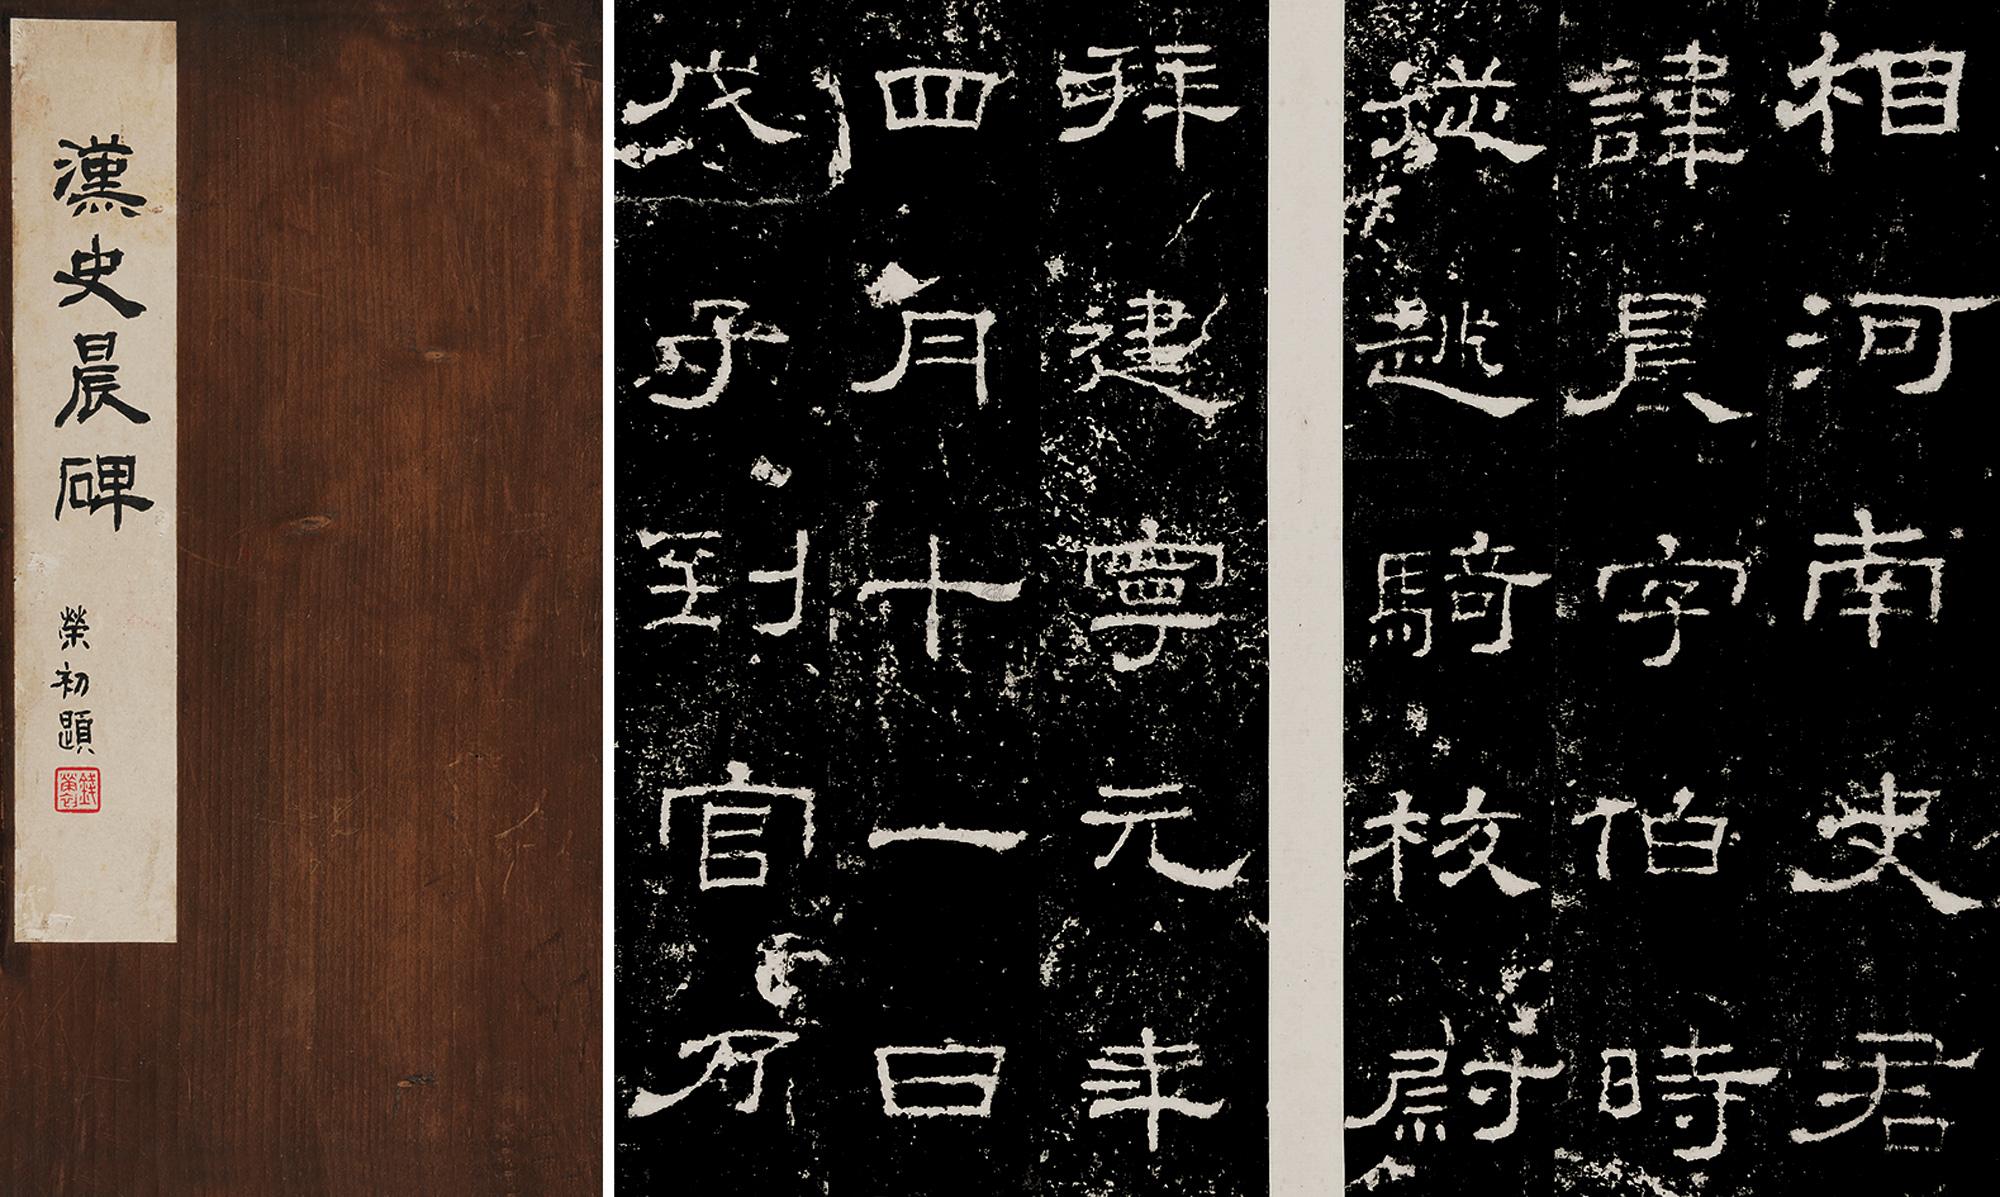 漢史晨碑
榮初題
相河南史君
諱晨字伯時
從越騎校尉
拜建寧元年
四月十一日
戊子到官乃